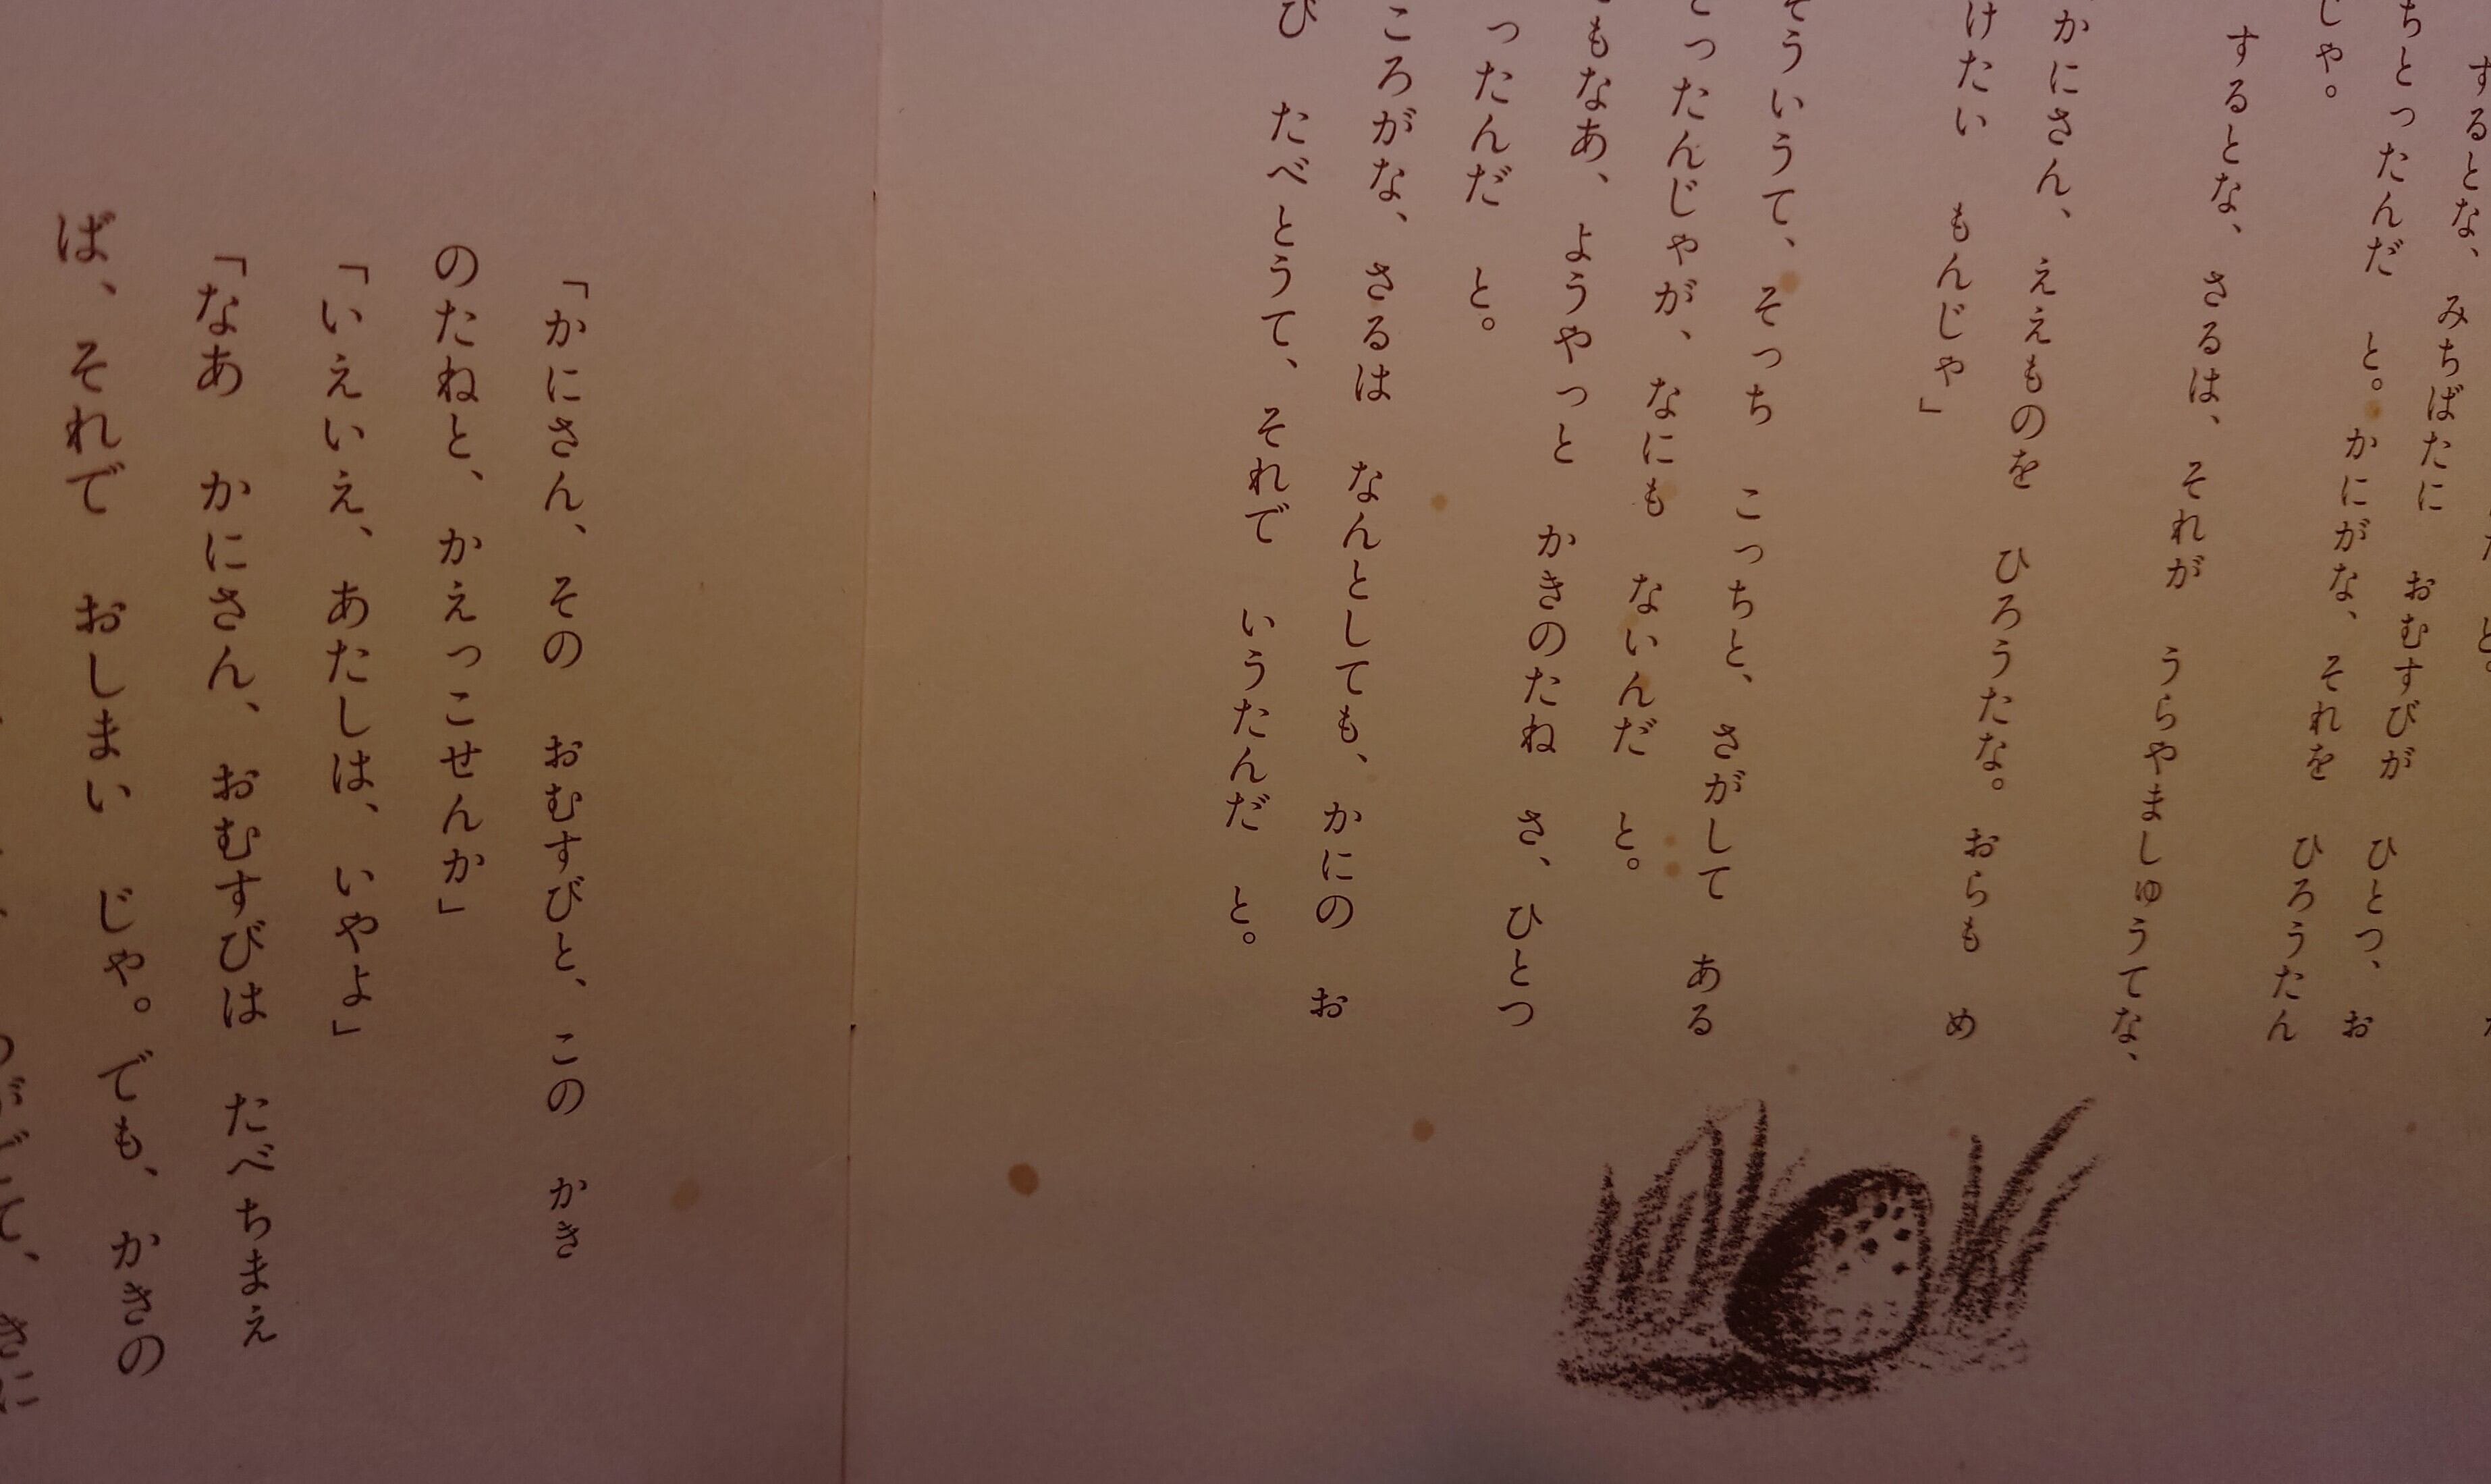 するとな、 みちばたに おむすびが ひとつ、 お
ちとったんだ と。 かにがな、 それを ひろうたん
じゃ。
するとな、 さるは、 それが うらやましゅうてな、
かにさん、 ええものを ひろうたな。 おらも め
けたい もんじゃ」
そういうて、 そっち こっちと、 さがして ある
ったんじゃが、 なにも ないんだ と。
もなあ、 ようやっと かきのたね さ、 ひとつ
ったんだ と。
ころがな、 さるは なんとしても、 かにの お
び たべとうて、 それで いうたんだ と。
「かにさん、 その おむすびと、 この かき
のたねと、 かえっこせんか」
「いえいえ、 あたしは、 いやよ」
「なあ かにさん、 おむすびは たべちまえ
ば、 それで おしまい じゃ。 でも、 かきの